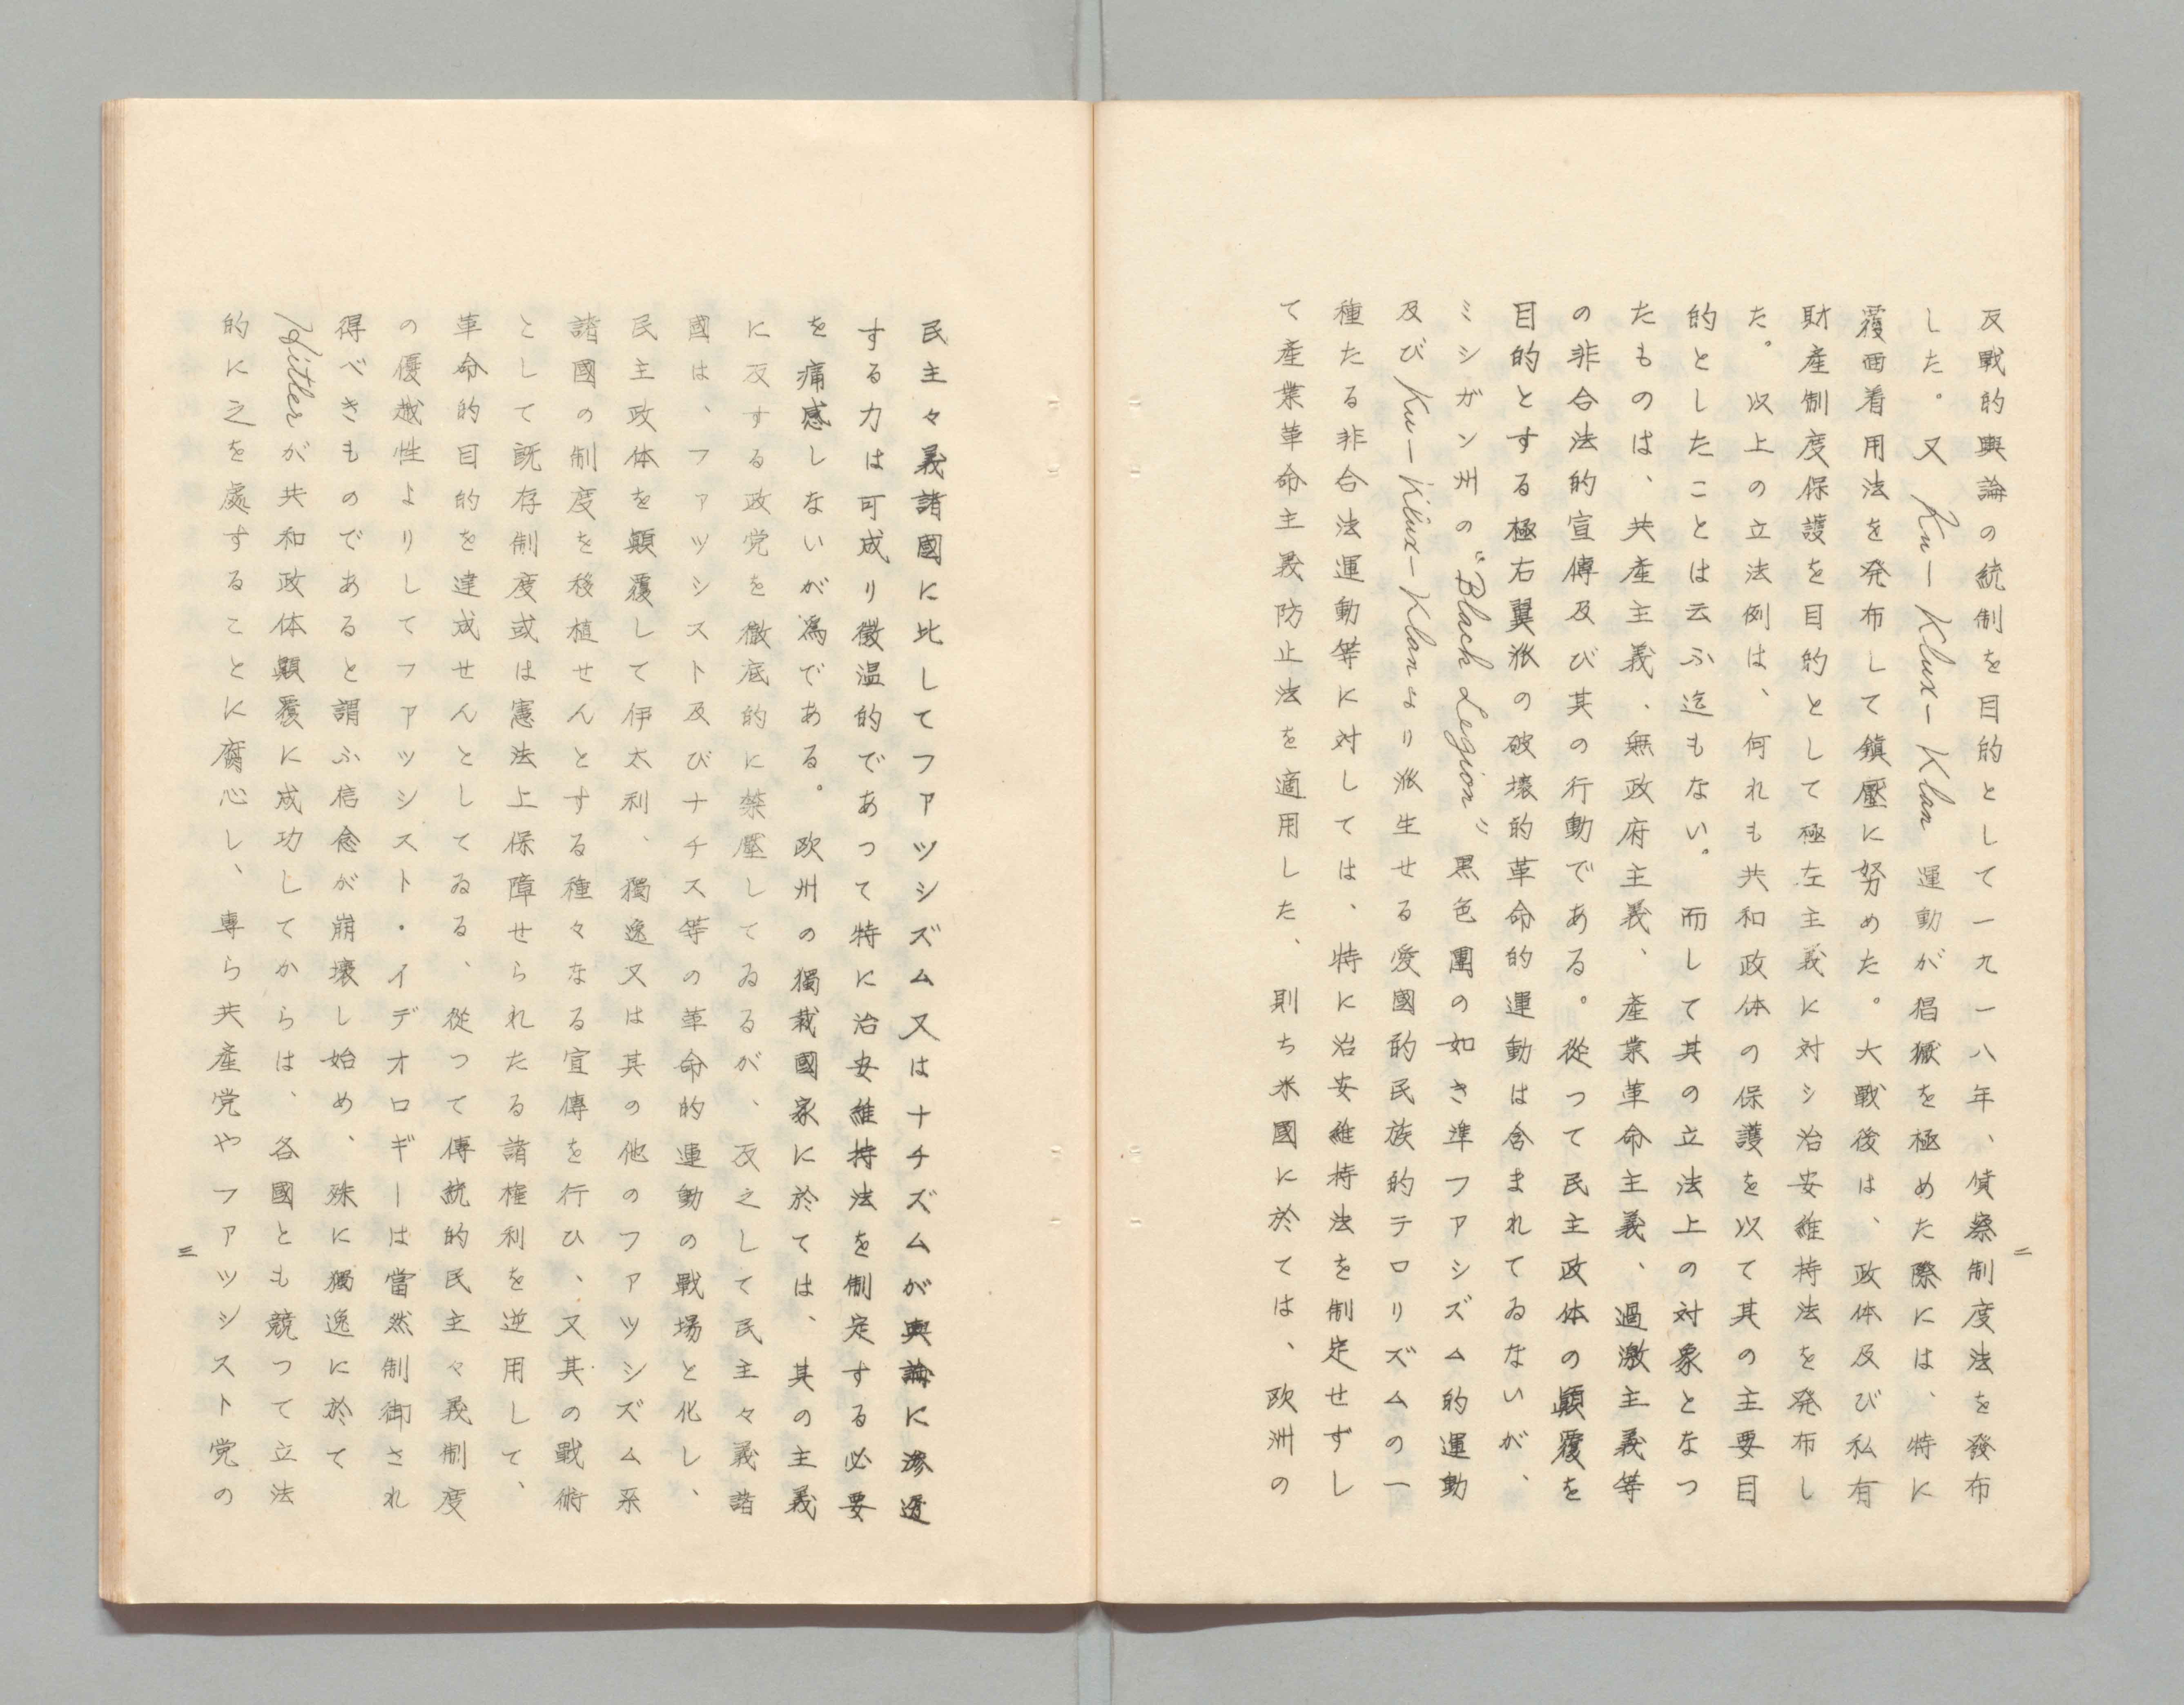 反戰的輿論の統制を目的として一九一八年、偵察制度法を發布
した。又 Ku—Klux—Klan 運動が猖獗を極めた際には、特に
覆面着用法を発布して鎮壓に努めた。大戰後は、政体及び私有
財産制度保護を目的として極左主義に対シ治安維持法を発布し
た。以上の立法例は、何れも共和政体の保護を以て其の主要目
的としたことは云ふ迄もない。而して其の立法上の対象となつ
たものは、共産主義、無政府主義、産業革命主義、過激主義等
の非合法的宣傳及び其の行動である。從つて民主政体の顚覆を
目的とする極右翼派の破壊的革命的運動は含まれてゐないが、
ミシガン州の〝Black Legion〟黒色團の如き準ファシズム的運動
及び Ku—Klux—Klan より派生せる愛國的民族的テロリズムの一
種たる非合法運動等に対しては、特に治安維持法を制定せずし
て産業革命主義防止法を適用した、則ち米國に於ては、欧洲の
二
民主々義諸國に比してファッシズム又はナチズムが輿論に滲透
する力は可成り微温的であって特に治安維持法を制定する必要
を痛感しないが爲である。欧州の獨裁國家に於ては、其の主義
に反する政党を徹底的に禁壓してゐるが、反之して民主々義諸
國は、ファッシスト及びナチス等の革命的運動の戰場と化し、
民主政体を顚覆して伊太利、獨逸又は其の他のファッシズム系
諸國の制度を移植せんとする種々なる宣傳を行ひ、又其の戰術
として既存制度或は憲法上保障せられたる諸権利を逆用して、
革命的目的を達成せんとしてゐる、從つて傳統的民主々義制度
の優越性よりしてファッシスト・イデオロギーは當然制御され
得べきものであると謂ふ信念が崩壊し始め、殊に獨逸に於て
Hitlerが共和政体顚覆に成功してからは、各國とも競つて立法
的に之を處することに腐心し、專ら共産党やファッシスト党の
三